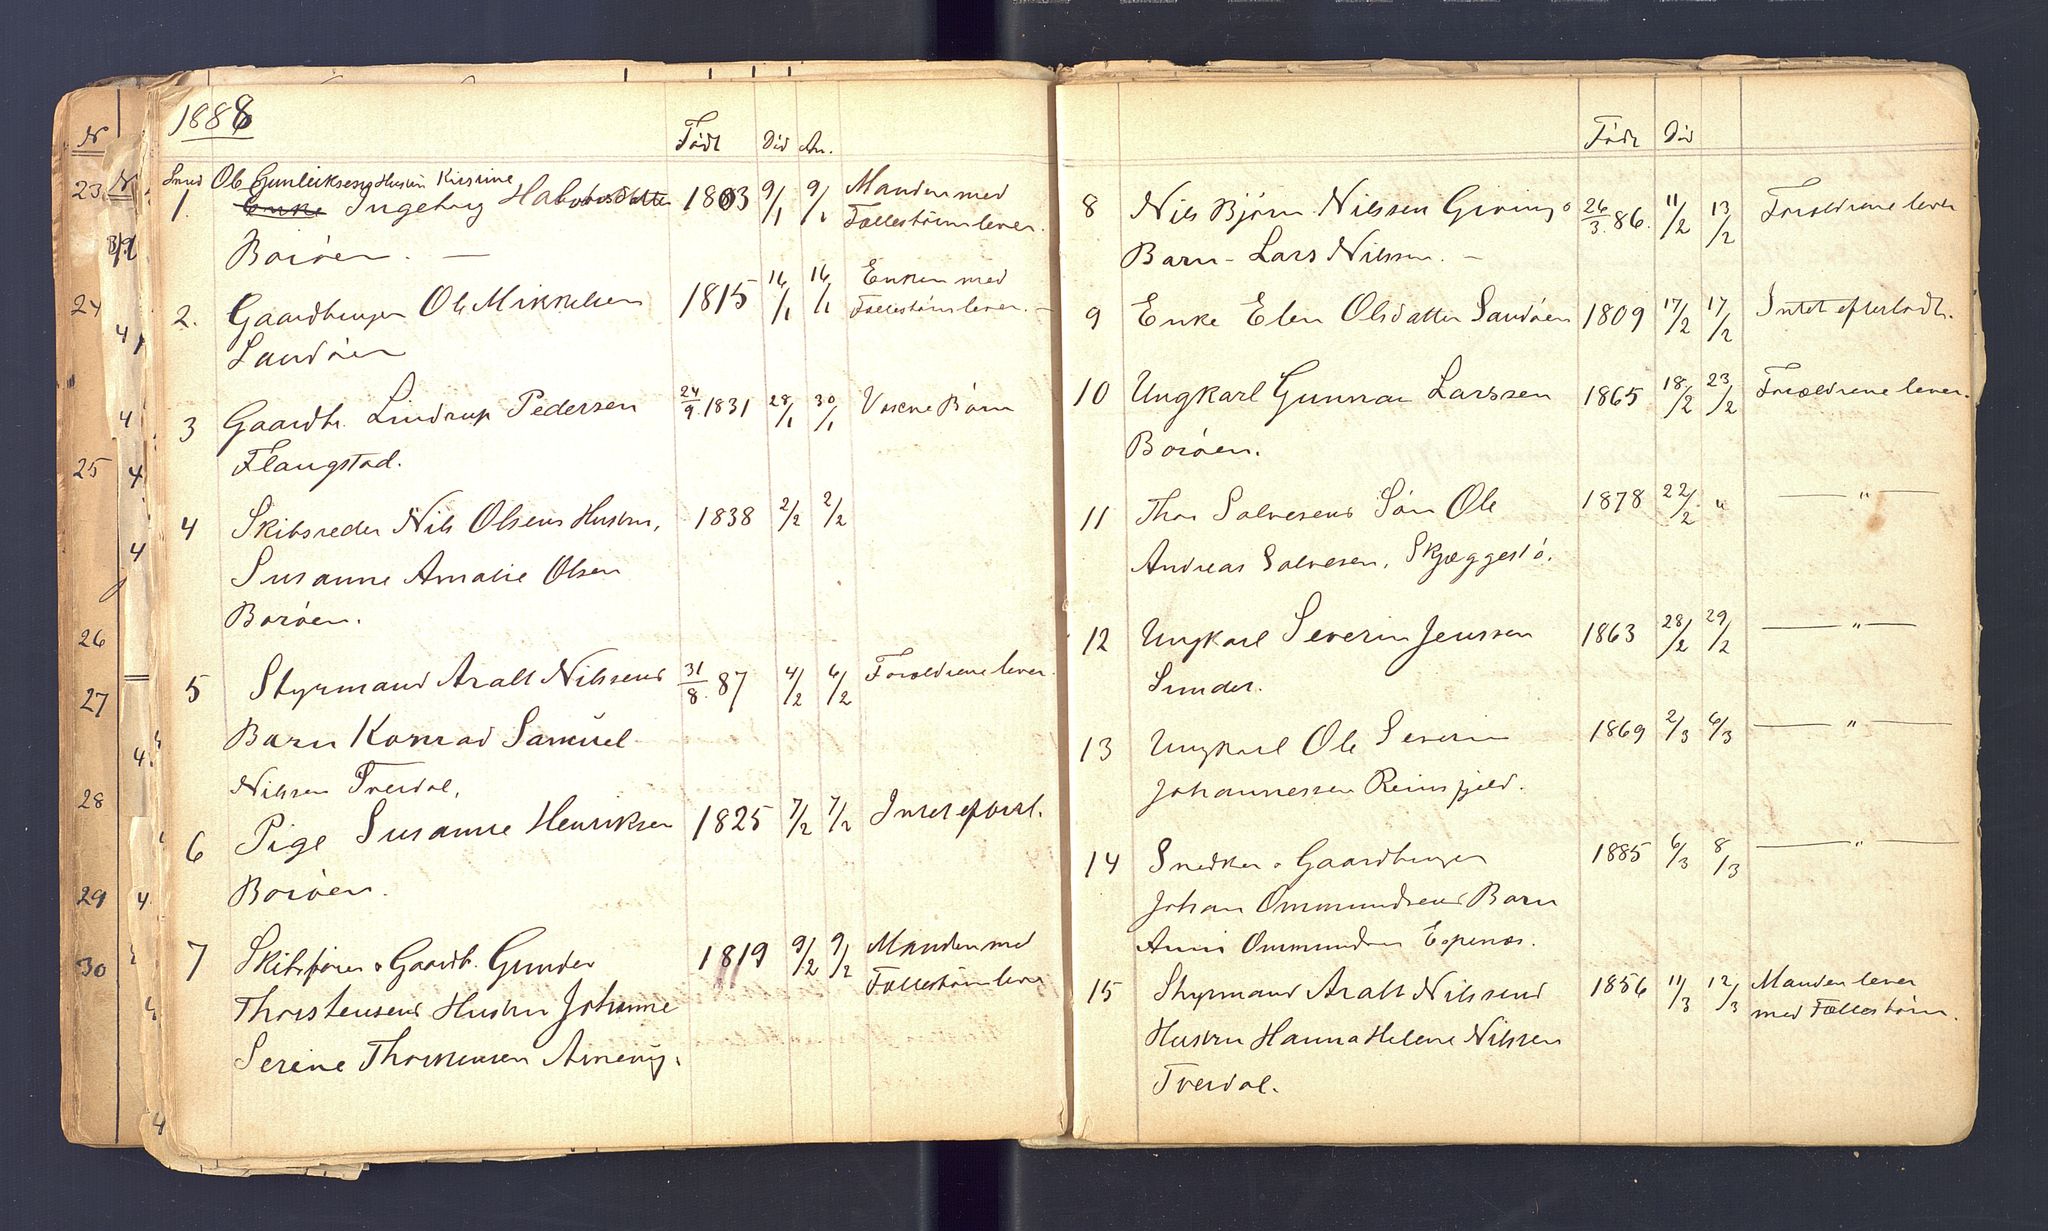 1888
Født Død An.
Smed Ole Gunleiksens Hustru Kirstine
1. Enke Ingeborg Halvorsdatter 1803 9/1 9/1 Manden med
Borøen. — Fællesbørn lever.
2. Gaardbruger Ole Mikkelsen 1815 16/1 16/1 Enken med
Sandøen Fællesbørn lever. —
3 Gaardbr. Lindrup Pedersen 24/9 1831 28/1 30/1 Voxne Børn
Flangstad.
4 Skibsreder Nils Olsens Hustru, 1838 2/2 2/2
Susanne Amalie Olsen
Borøen.
5 Styrmand Aralt Nilsens 31/8. 87 4/2 6/2 Forældrene lever.
Barn Konrad Samuel
Nilssen Tverdal.
6 Pige Susanne Henriksen 1825 7/2 7/2 Intet efterl.
Borøen.
7 Skibsfører o Gaardb. Gunder 1819 9/2 9/2 Manden med
Thorstensens Hustru Johanne Fællesbørn lever
Serine Thorstensen Arnevig.
Født Død
8 Nils Bjørn Nilssen Gjeving o 26/3. 86. 11/2 13/2 Forældrene lever
Barn – Lars Nilssen. –
9 Enke Elen Olsdatter Sandøen 1809 17/2 17/2 Intet efterladt.
10 Ungkarl Gunnar Larssen 1865 18/2 23/2 Forældrene lever.
Borøen.
11 Thor Salvesens Søn Ole 1878 22/2. " — " —
Andreas Salvesen, Skjæggestø.
12 Ungkarl Severin Jenssen 1863 28/2 29/2 — " —
Sundet.
13 Ungkarl Ole Severin 1869 2/3 6/3 — " —
Johannessen Reinsfjeld.
14 Snedker o Gaardbruger 1885 6/3 8/3 — " —
Johan Ommundsens Barn
Anni Ommundsen Espenæs.
15 Styrmand Aralt Nilssens 1856 11/3 12/3 Manden lever
Hustru Hanna Helene Nilssen med Fællesbørn.
Tverdal.
N
23
24
25
26
27
28
29
30